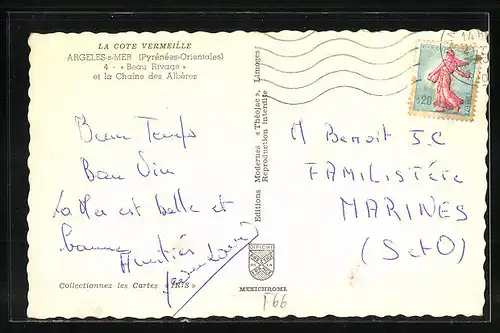 LA COTE VERMEILLE
ARGELES-s-MER (Pyrénées-Orientales)
4 - « Beau Rivage »
et la Chaîne des Albères
Beau Temps
Bon Vin
La Mer est belle et
bonne
Amitiés
Collectionnez les Cartes « IRIS »
Editions Modernes « Théojac », Limoges
Reproduction interdite
MEXICHROME
F66
0,20
M Benoit J.C
FAMILISTÉRE
MARINES
(S et O)